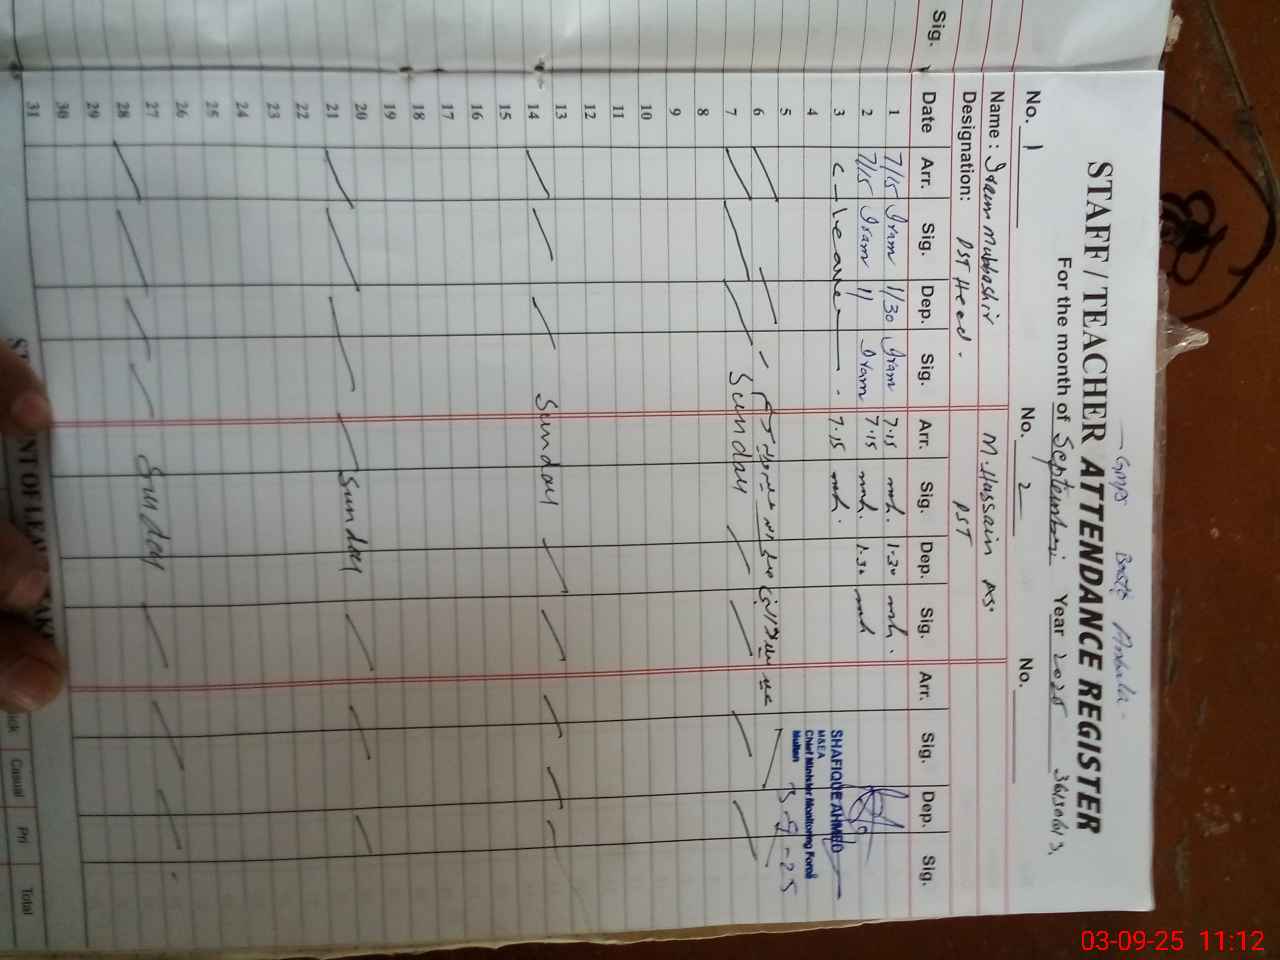 GMPS Basti
STAFF / TEACHER ATTENDANCE REGISTER
For the month of September Year 2025
No. 1 No. 2 No.
Name : Iram Mubbashir M. Hussain
Designation: PST Head. PST
Sig. Date Arr. Sig. Dep. Sig. Arr. Sig. Dep. Sig. Arr. Sig. Dep. Sig.
1 7/15 Iram 1/30 Iram 7.15 mh. 1.30 mh.
2 7/15 Iram 11 Iram 7.15 mh. 1.30 mh
3 C-leave 7.15 mh.
SHAFIQUE AHMED
M&EA
Chief Minister Monitoring Force
Multan
3-9-25
4
5
6
7 Sunday
8
9
10
11
12
13
14 Sunday
15
16
17
18
19
20
21 Sunday
22
23
24
25
26
27
28 Sunday
29
30
31
NT OF LEA
Casual Pri Total
03-09-25 11:12